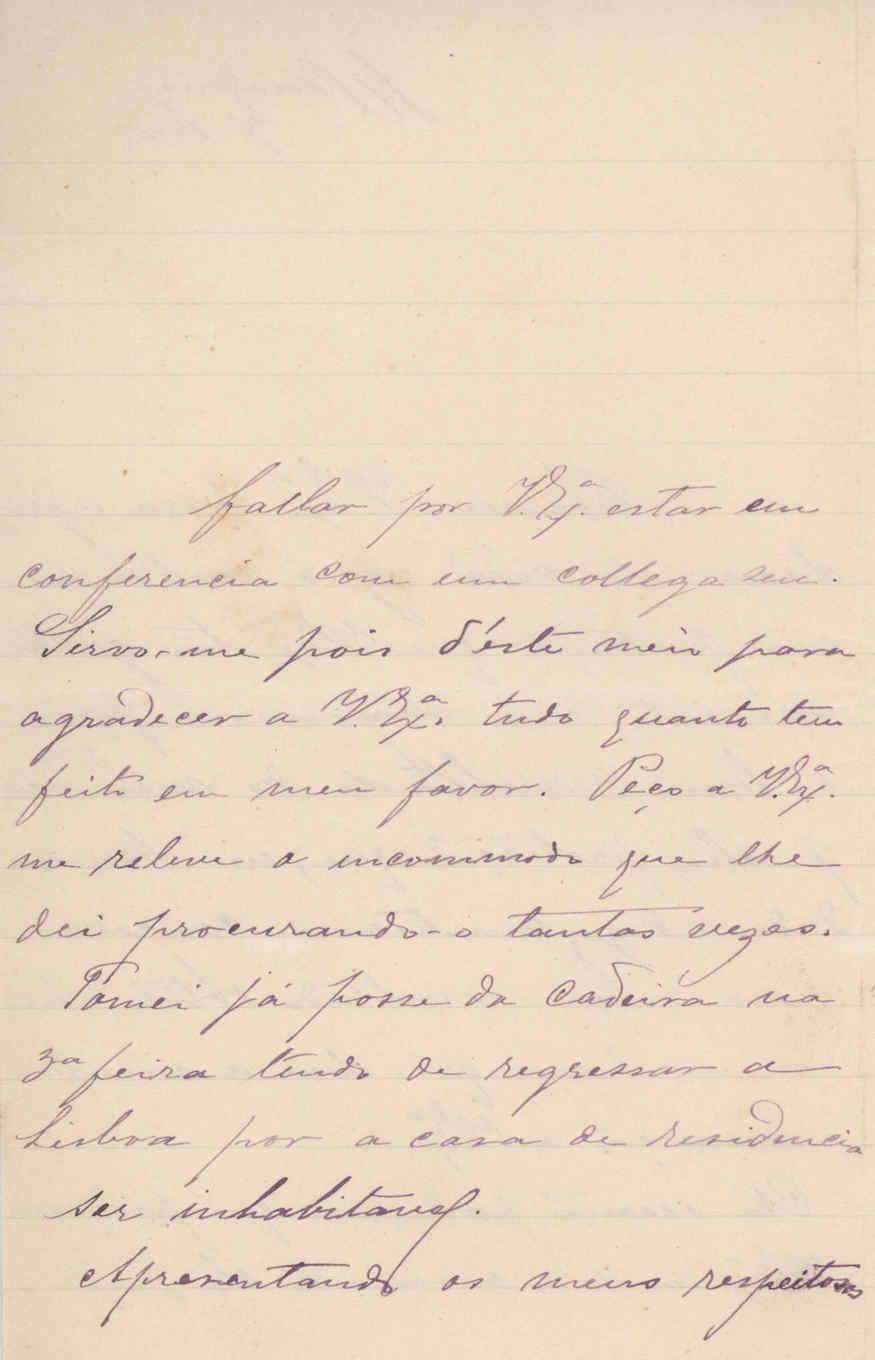 fallar por V. Ex.ª estar em
conferencia com um collega seu.
Sirvo-me pois d'éste meio para
agradecer a V. Ex.ª tudo quanto tem
feito em meu favor. Péço a V. Ex.ª
me releve o incommodo que lhe
dei procurando-o tantas vezes.
Tomei já posse da cadeira na
3ª feira tendo de regressar a
Lisboa por a casa de residencia
ser inhabitavel.
Apresentando os meus respeitosos